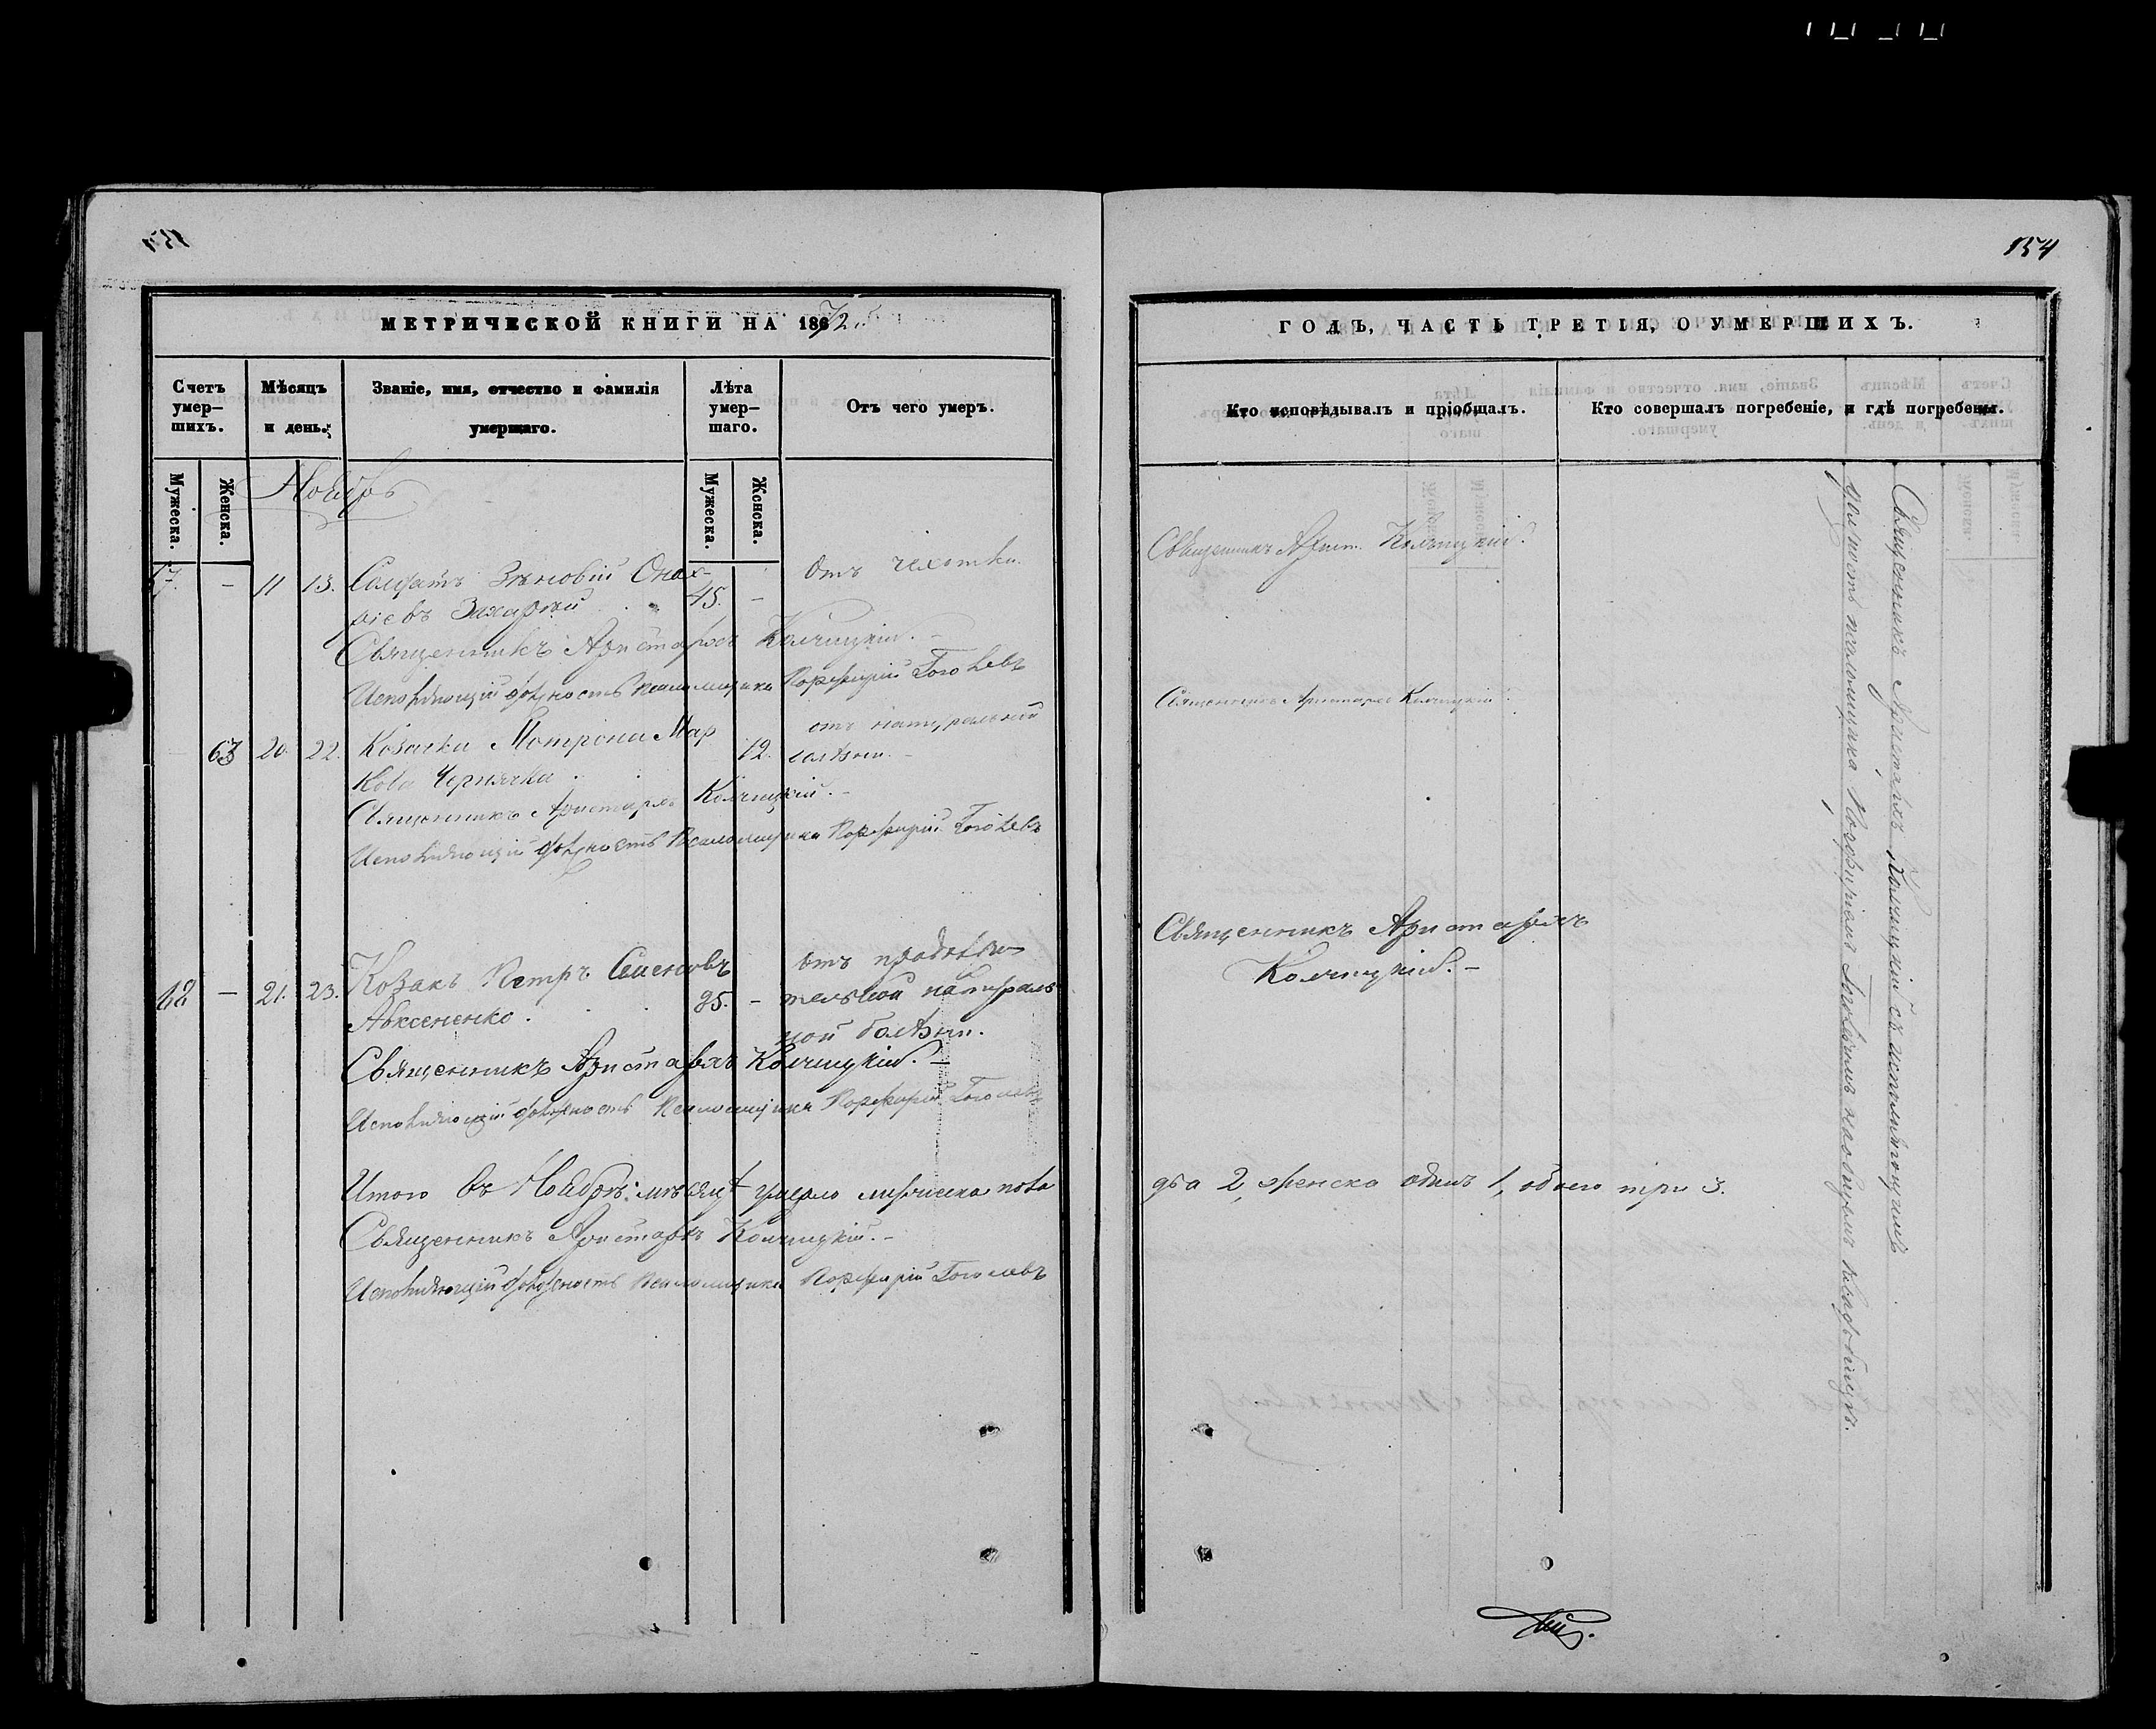 154
МЕТРИЧЕСКОЙ КНИГИ НА 1872
ГОДЪ, ЧАСТЬ ТРЕТІЯ, О УМЕРШИХЪ.
Счетъ умер-
шихъ.
Мѣсяцъ
и день.
Званіе, имя, отчество и фамилія
умершаго.
Лѣта
умер-
шаго.
Отъ чего умеръ.
Кто исповѣдывалъ и пріобщалъ.
Кто совершалъ погребеніе, и гдѣ погребены.
Мужеска.
Женска.
Мужеска.
Женска.
Ноябрь
— 11 13. Солдатъ Зѣновій
45. — Отъ чехотки.
Священникъ Арист. Колчицкій.
Священникъ Аристархъ Колчицкій. —
Исполняющій должность псаломщика Порфирій Гоголевъ
63 20. 22. Козачка Мотрона Мар
кова Чернячка.
12. отъ натуральной
болѣзни. —
Священникъ Аристархъ Колчицкій.
Священникъ Аристархъ Колчицкій. —
Исполняющій должность Псаломщика Порфирій Гоголевъ
— 21. 23. Козакъ Петръ Семеновъ
Авксененко.
— отъ
тельной натураль
ной болѣзни.
Священникъ Аристархъ
Колчицкій. —
Священникъ Аристархъ Колчицкій. —
Исполняющій должность Псаломщика Порфирій Гоголевъ
Итого въ Ноябрѣ мѣсяцѣ умерло мужеска пола
два 2, женска одинъ 1, обоего три 3.
Священникъ Аристархъ Колчицкій. —
Исполняющій должность псаломщика Порфирій Гоголевъ
Священникъ Аристархъ Колчицкій съ исполняющимъ
должность псаломщика Порфиріемъ Гоголевымъ на общемъ кладбищѣ.